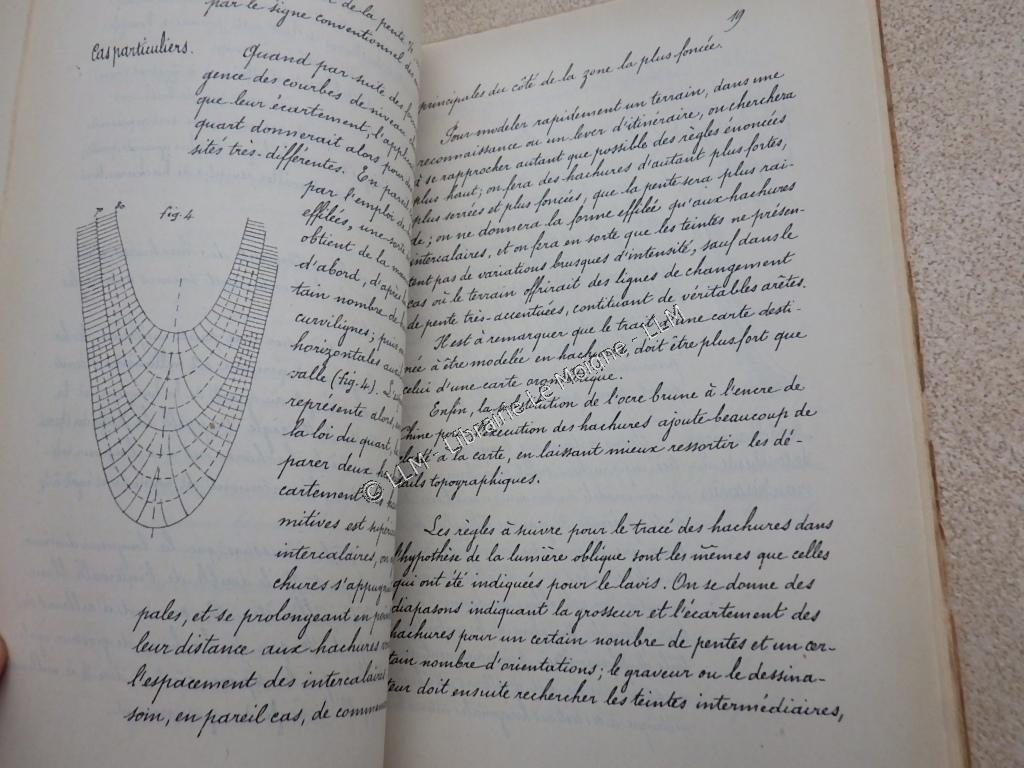 de la pente
par le signe conventionnel des
Cas particuliers.
Quand par suite des
gence des courbes de niveau,
que leur écartement, l'appli
quart donnerait alors pour
sites très-différentes. En pareil
par l'emploi de
effilées, une sorte
obtient de la ma
d'abord, d'après
tain nombre de
curvilignes; puis
horizontales aux
valle (fig. 4).
représente alors,
la loi du quart,
parer deux ha
cartement des
mitives est supér
intercalaires, ou
chures s'appuya
pales, et se prolongeant en
leur distance aux hachures
l'espacement des intercalaires
soin, en pareil cas, de comme
fig. 4
19
principales du côté de la zone la plus foncée.
Pour modeler rapidement un terrain, dans une
reconnaissance ou un lever d'itinéraire, on cherchera
à se rapprocher autant que possible des règles énoncées
plus haut; on fera des hachures d'autant plus fortes,
plus serrées et plus foncées, que la pente sera plus rai-
de; on ne donnera la forme effilée qu'aux hachures
intercalaires, et on fera en sorte que les teintes ne présen-
tent pas de variations brusques d'intensité, sauf dans le
cas où le terrain offrirait des lignes de changement
de pente très-accentuées, constituant de véritables arêtes.
Il est à remarquer que le trait d'une carte desti-
née à être modelée en hachures, doit être plus fort que
celui d'une carte
Enfin, la substitution de l'ocre brune à l'encre de
Chine pour l'exécution des hachures ajoute beaucoup de
clarté à la carte, en laissant mieux ressortir les dé-
tails topographiques.
Les règles à suivre pour le tracé des hachures dans
l'hypothèse de la lumière oblique sont les mêmes que celles
qui ont été indiquées pour le lavis. On se donne des
diapasons indiquant la grosseur et l'écartement des
hachures pour un certain nombre de pentes et un cer-
tain nombre d'orientations; le graveur ou le dessina-
teur doit ensuite rechercher les teintes intermédiaires,
© LLM - Librairie Le Moigne - LLM